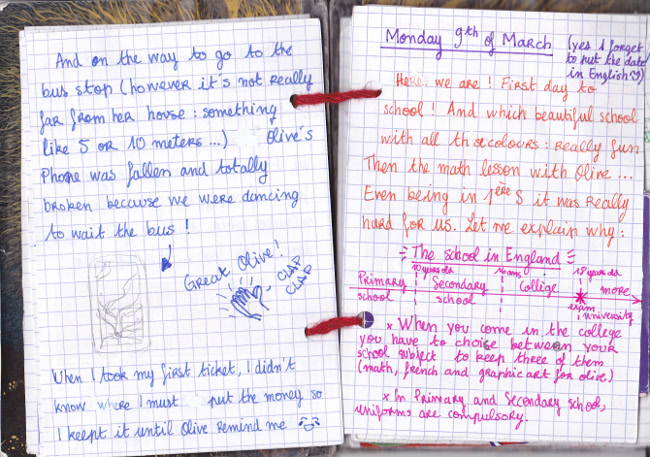 And on the way to go to the
bus stop (however it's not really
far from her house : something
like 5 or 10 meters ...) Olive's
Phone was fallen and totally
broken because we were dancing
to wait the bus !
Great Olive !
CLAP
CLAP
When I took my first ticket, I didn't
know where I must put the money so
I keept it until Olive Remind me
Monday 9th of March
(yes I forget
to put the date
in English)
Here we are ! First day to
school ! And which beautiful school
with all those colours : Really fun
Then the math lesson with Olive ...
Even being in 1ère S it was Really
hard for us. Let me explain why :
The school in England
10 years old
16
18 years old
Primary
school
Secondary
school
College
more
exam
university
x When you come in the college
you have to choice between your
school subject to keep three of them
(math, french and graphic art for olive)
x In Primary and Secondary school,
uniforms are compulsory.